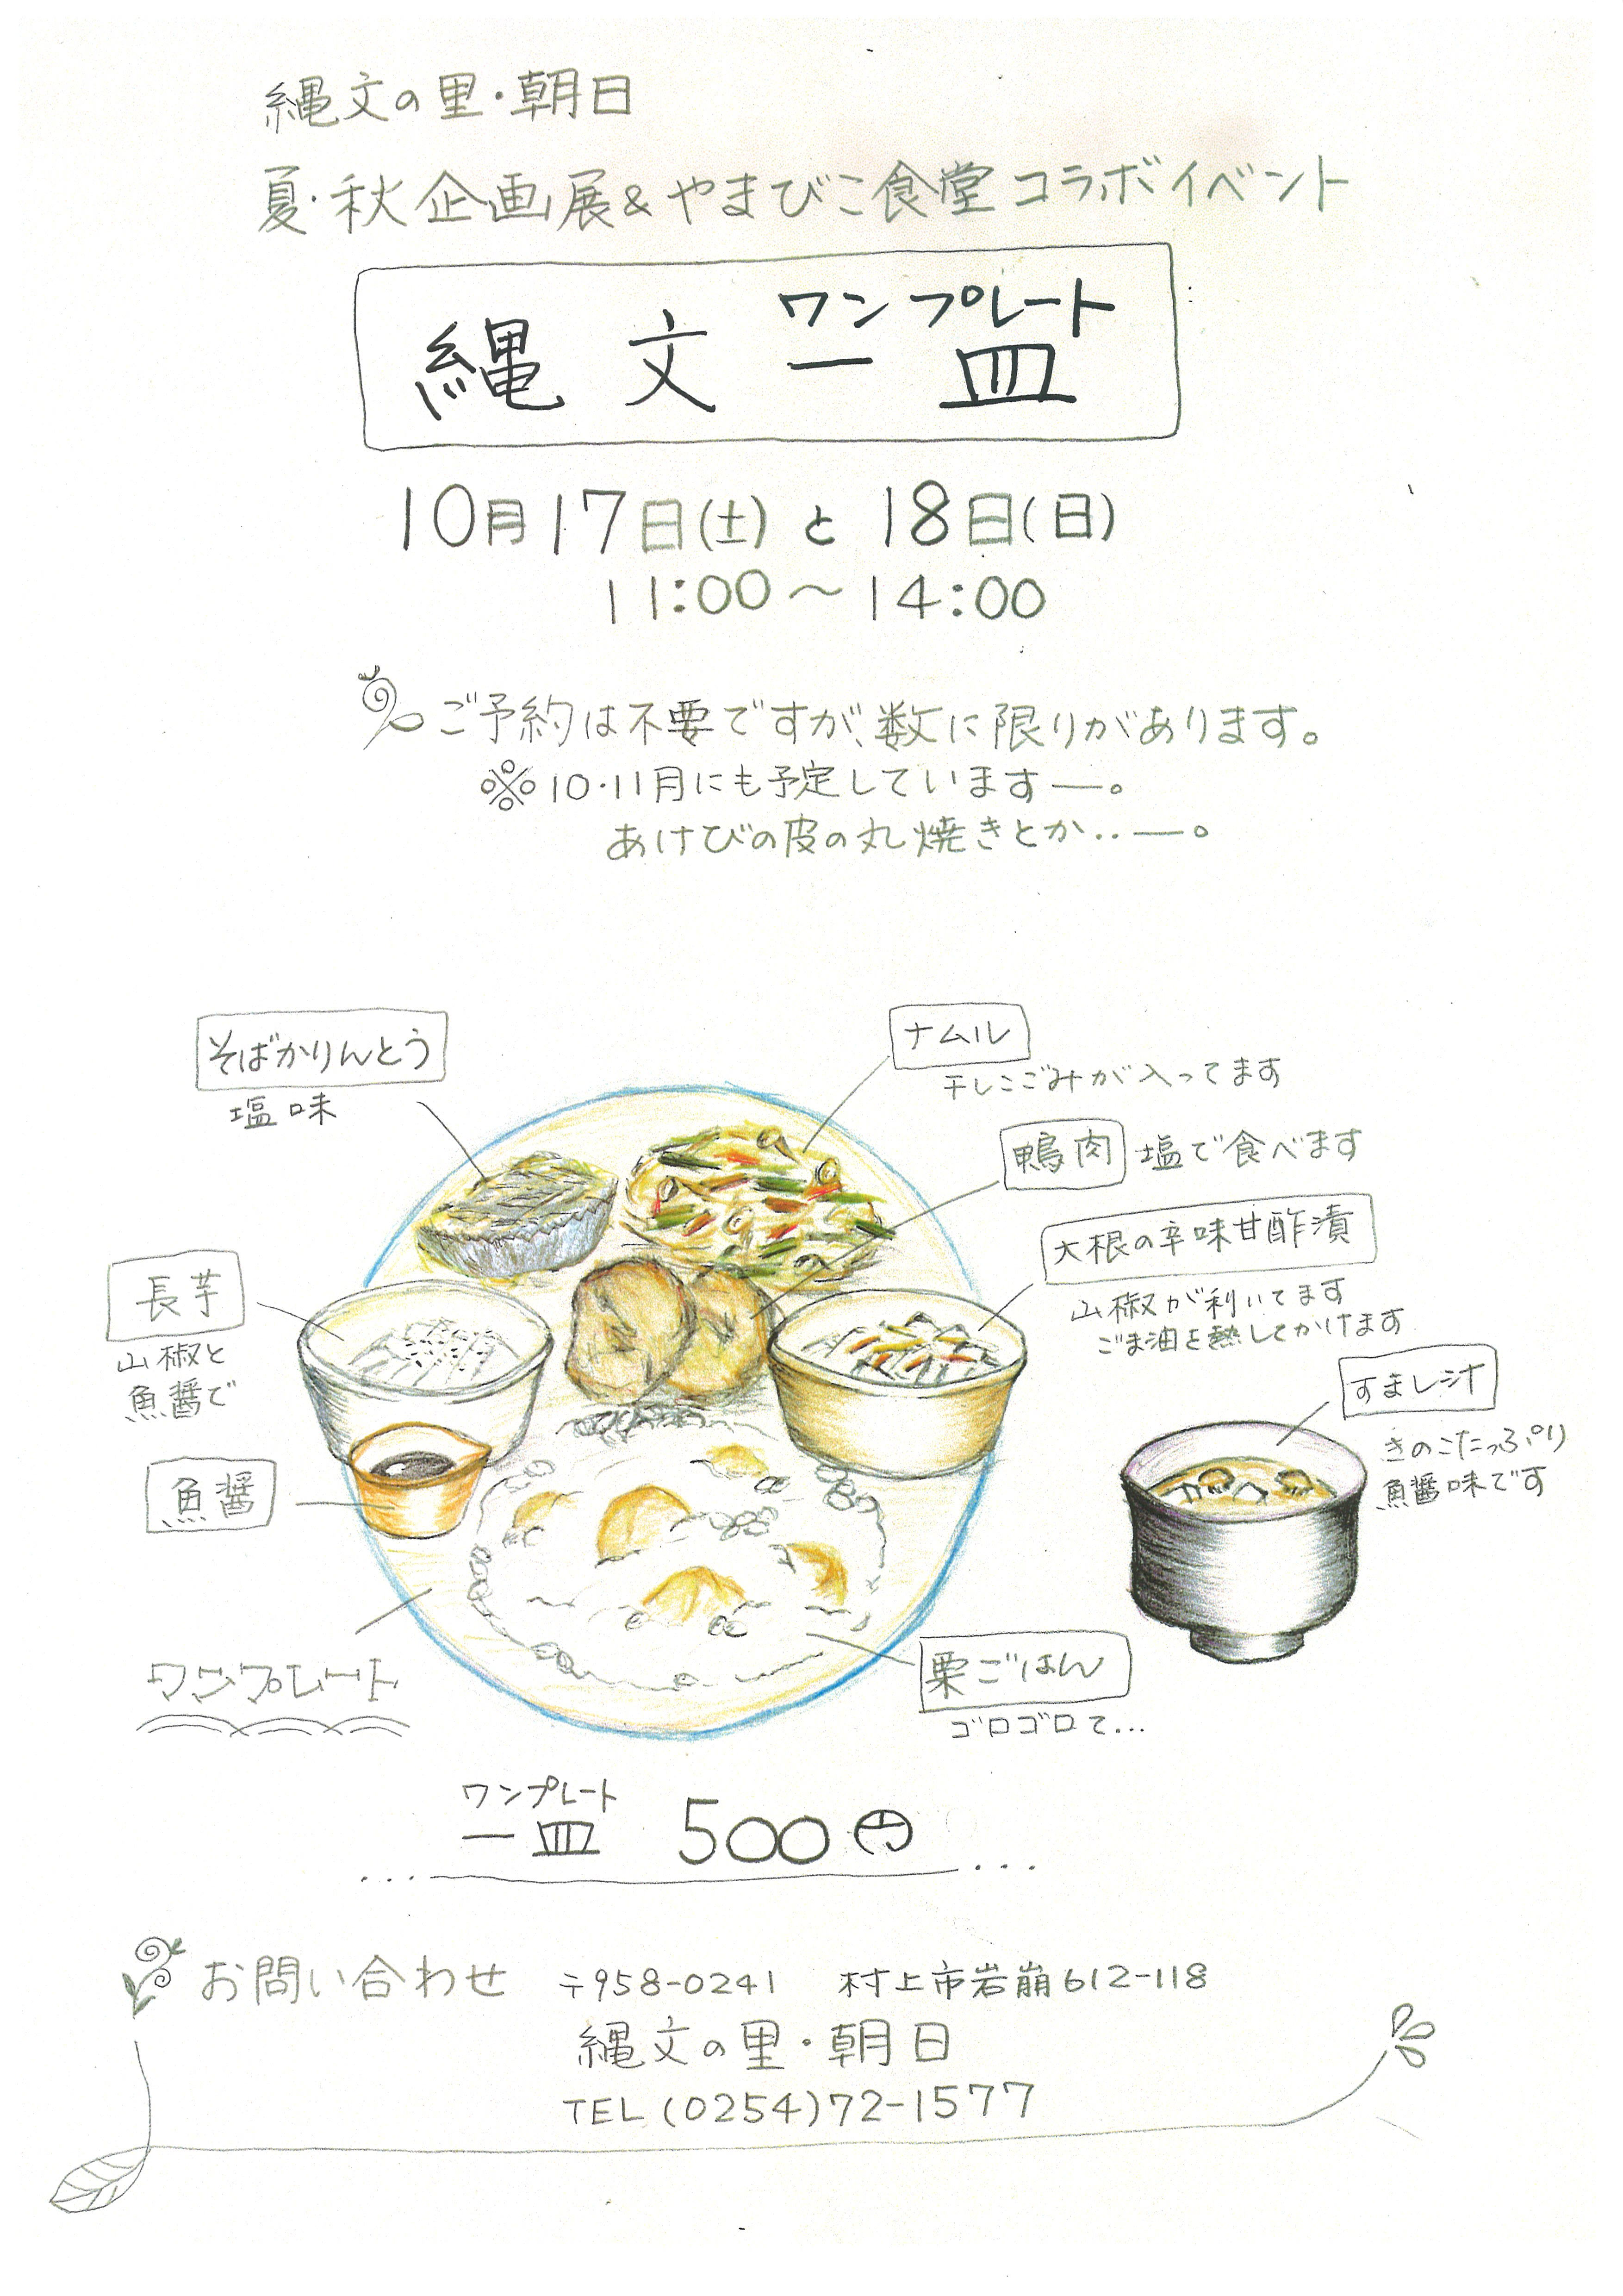 縄文の里・朝日
夏・秋企画展&やまびこ食堂コラボイベント
ワンプレート
縄文一皿
10月17日(土)と18日(日)
11:00～14:00
ご予約は不要ですが、数に限りがあります。
※10・11月にも予定しています―。
あけびの皮の丸焼きとか‥―。
そばかりんとう
塩味
ナムル
干しこごみが入ってます
鴨肉 塩で食べます
大根の辛味甘酢漬
山椒が利いてます
ごま油を熱してかけます
長芋
山椒と
魚醤で
すまし汁
きのこたっぷり
魚醤味です
魚醤
ワンプレート
栗ごはん
ゴロゴロて...
ワンプレート
一皿 500円
お問い合わせ 〒958-0241 村上市岩崩612-118
縄文の里・朝日
TEL(0254)72-1577